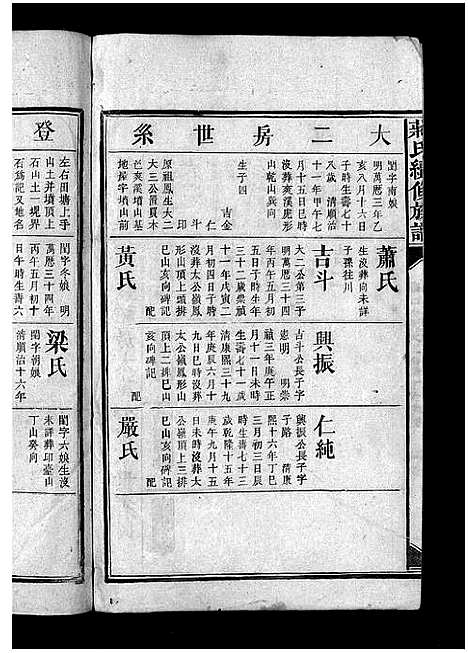 蔣氏續修族譜
大二房世系
閨字南娘
明萬曆三年乙
亥八月十六日
子時生壽七十
八歲 清順治
十一年甲午七
月十五日巳時
沒葬爽溪虎形
山乾山巽向
生子四
吉金
仁斗
印
原祖鳳生大二
大三公黃貫木
芒爽溪墳山基
地操字墳山前
左右田塘上手
山土并墳頂上
石山土一坭界
石為記又地名
登
蕭氏
生沒葬向未詳
子孫往川
吉斗
大二公第三子
明萬曆三十四
年丙午五月初
五日子時生壽
三十二歲崇禎
十一年戊寅二
月初四日子時
沒葬太公嶺鳳
形山頂上頭排
巳山亥向碑記
配
黃氏
閨字冬娘 明
萬曆三十四年
丙午五月初十
日午時生壽六
興振
吉斗公長子字
憲明 明崇
禎三年庚午正
月十一日未時
生壽七十一歲
清康熙三十九
年庚辰六月十
九日巳時沒葬
太公嶺鳳形山
頂上二排巳山
亥向碑記
配
梁氏
閨字朝娘
清順治十六年
仁純
興振公長子字
子路 清康
熙十六年丁巳
三月初三日辰
時生壽七十三
歲乾隆十五年
庚午九月十五
日巳時沒葬太
公嶺頂上三排
巳山亥向碑記
配
嚴氏
閨字六娘生沒
未詳葬印臺山
丁山癸向